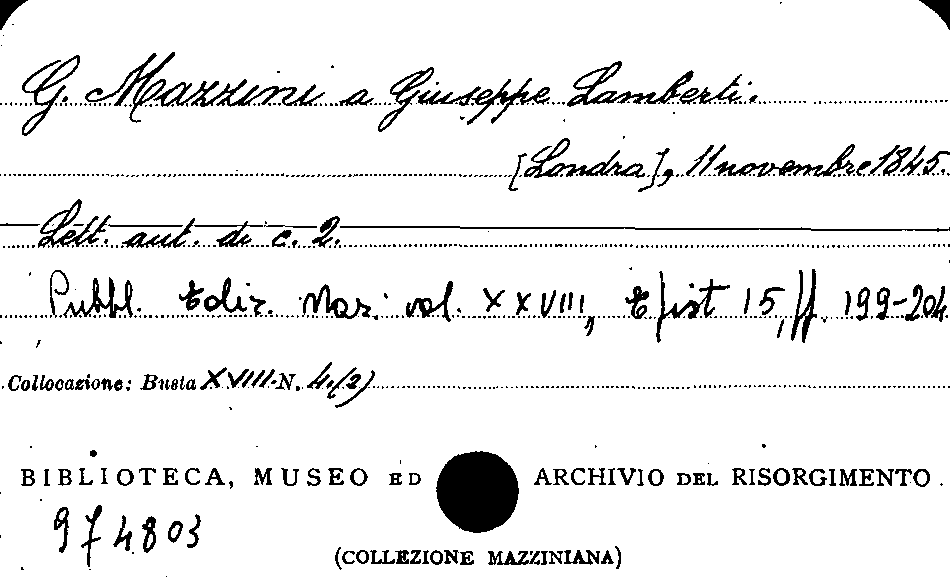 G. Mazzini a Giuseppe Lamberti.
[Londra], 11 novembre 1845.
Lett. aut. di c. 2.
Pubbl. Ediz. Naz. vol. XXVIII, Epist 15, pp. 199-204
Collocazione: Busta XVIII-N. 4.(2)
BIBLIOTECA, MUSEO ED ARCHIVIO DEL RISORGIMENTO
974803
(COLLEZIONE MAZZINIANA)